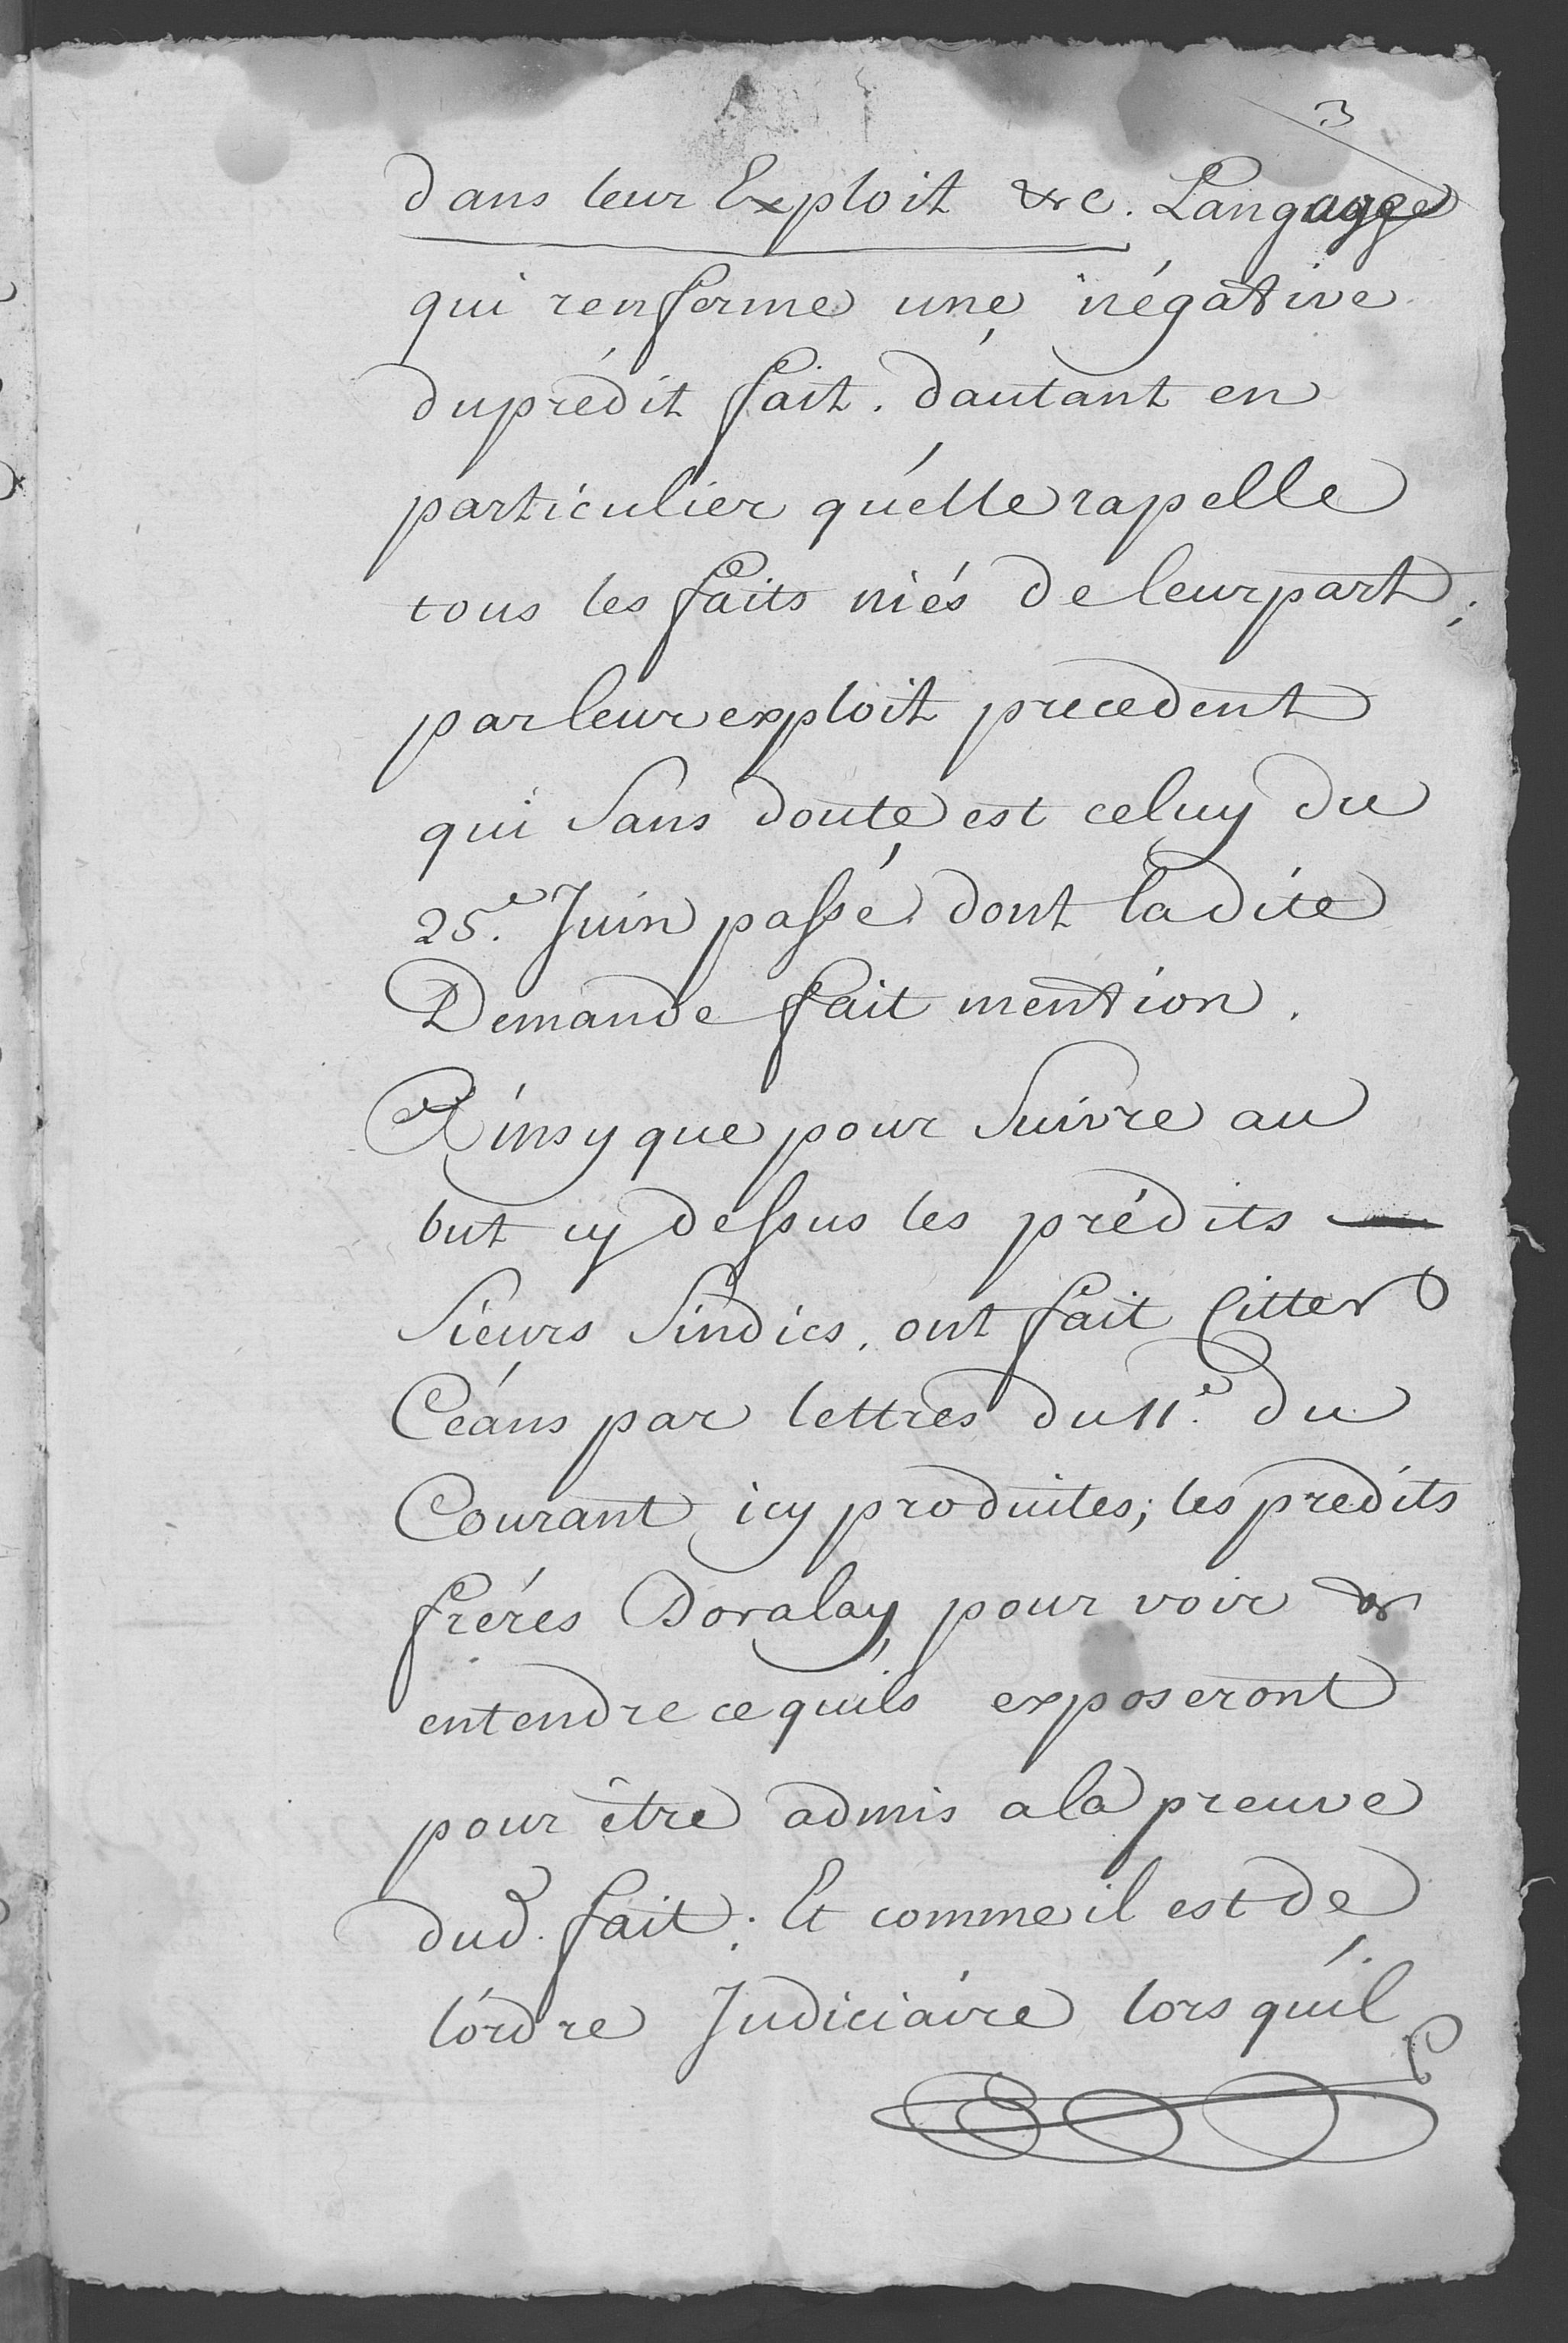 3
dans leur Exploit &c. Langagge
qui renferme une négative
du prédit fait. d'autant en
particulier qu'elle rapelle
tous les faits niés de leur part;
par leur exploit precedent
qui sans doute est celuy du
25.e Juin passé dont ladite
Demande fait mention.
Ainsy que pour suivre au
but cy dessus les prédits —
Sieurs Sindics, ont fait Citter
Céans par lettres du 11.e du
Courant icy produites; les predits
fréres Doralay pour voir &
entendre ce qu'ils exposeront
pour être admis a la preuve
dud. fait; Et comme il est de
l'ordre Judiciaire lors qu'il